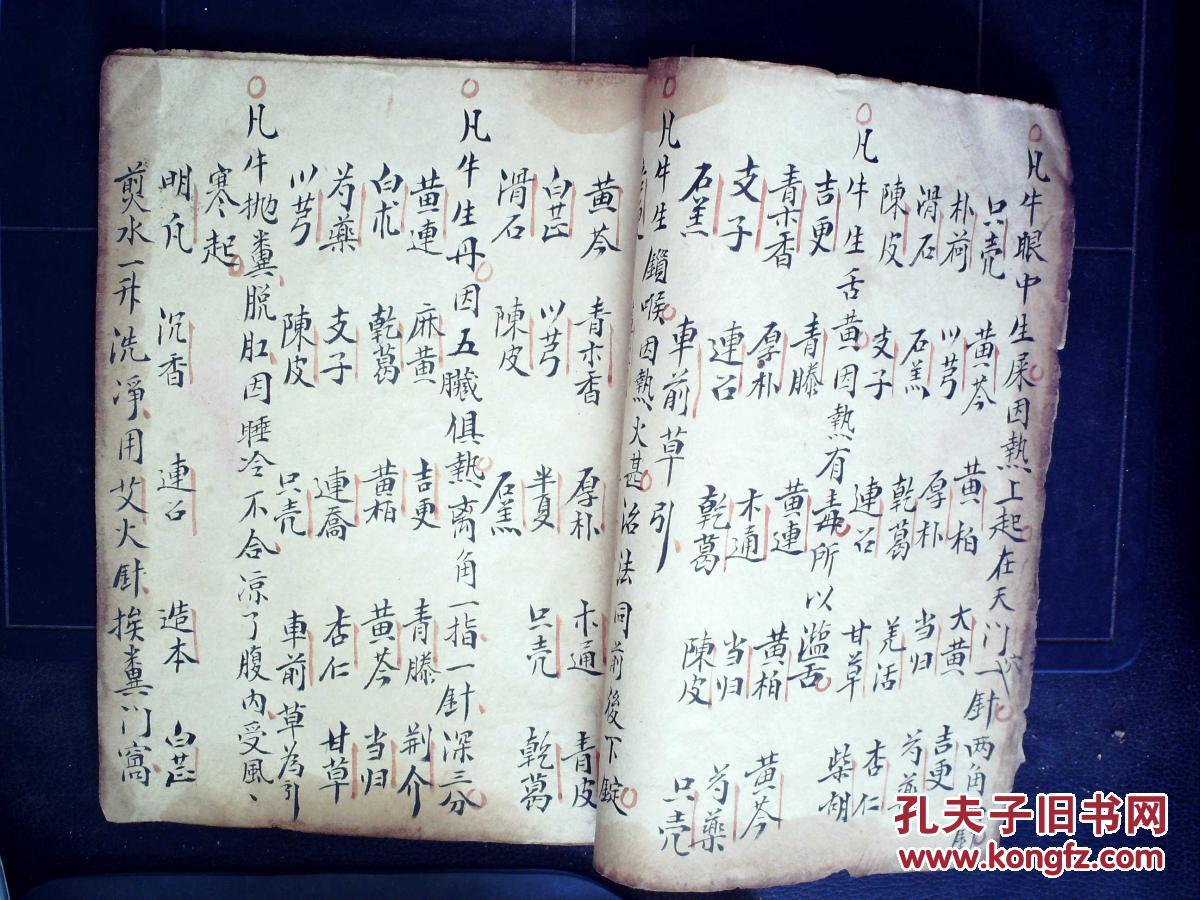 凡牛眼中生屎因热上起在天门穴一針两角
只壳 黄芩 黄柏 大黄 吉更
朴荷 川芎 厚朴 当归 芍药
滑石 石羔 乾葛 羌活 杏仁
陳皮 支子 連召 甘草 柴胡
凡牛生舌黄因热有毒所以滥舌
吉更 青滕 黄連 黄柏 黄芩
青木香 厚朴 木通 当归 芍藥
支子 連召 乾葛 陳皮 只壳
石羔 車前草引
凡牛生鎖喉因熱火甚治法同前後下錠
黄芩 青木香 厚朴 木通 青皮
白芷 川芎 半夏 只壳 乾葛
滑石 陳皮 石羔
凡牛生丹因五臟俱熱离角一指一針深三分
黄連 麻黄 吉更 青滕 荆介
白术 乾葛 黄柏 黄芩 当归
芍藥 支子 連喬 杏仁 甘草
川芎 陳皮 只壳 車前草為引
凡牛抛糞脱肛因睡冷不合凉了腹内受風、
寒起
明凡 沉香 連召 造本 白芷
煎水一升洗淨用艾火針挨糞门窩
孔夫子旧书网
www.kongfz.com